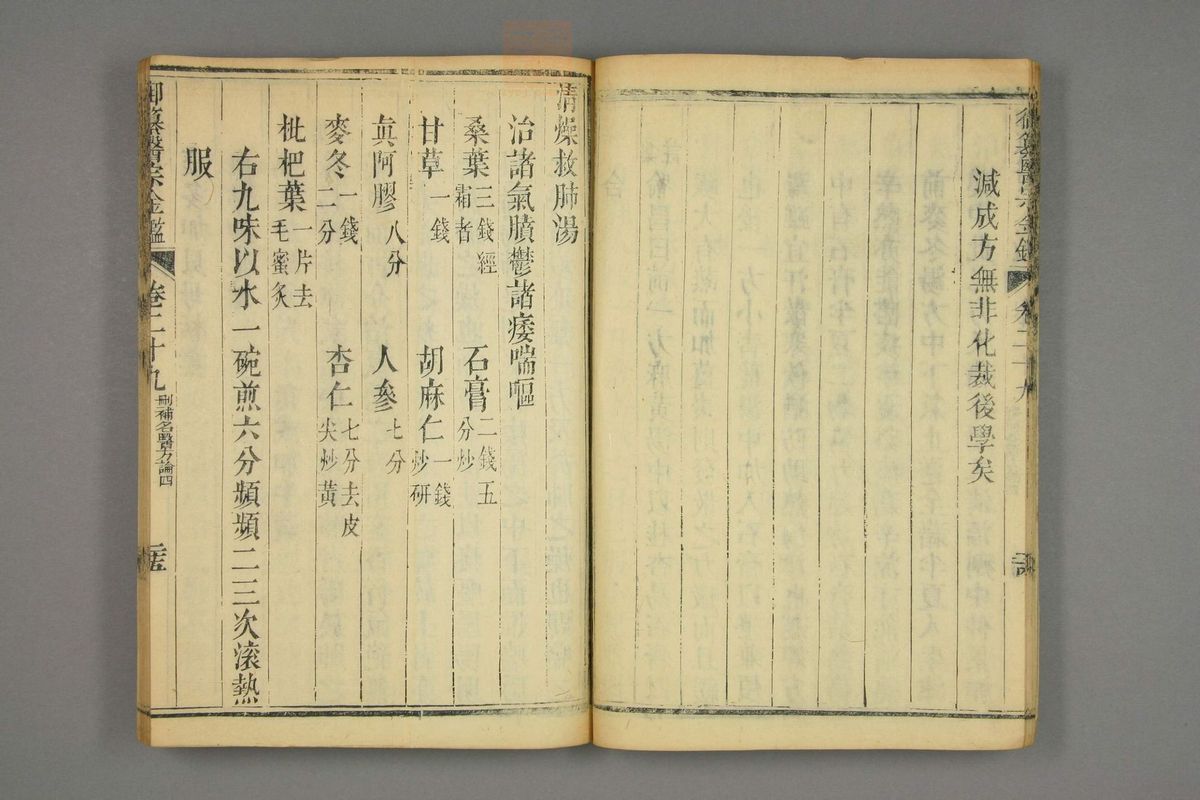 減成方無非化裁後學矣
卷二十九
清燥救肺湯
治諸氣膹鬱諸痿喘嘔
桑葉三錢經霜者 石膏二錢五分炒
甘草一錢 胡麻仁一錢炒研
眞阿膠八分 人參七分
麥冬一錢二分 杏仁七分去皮尖炒黃
枇杷葉一片去毛蜜炙
右九味以水一碗煎六分頻頻二三次滚熱
服
御纂醫宗金鑑 卷二十九 刪補名醫方論四 二十五